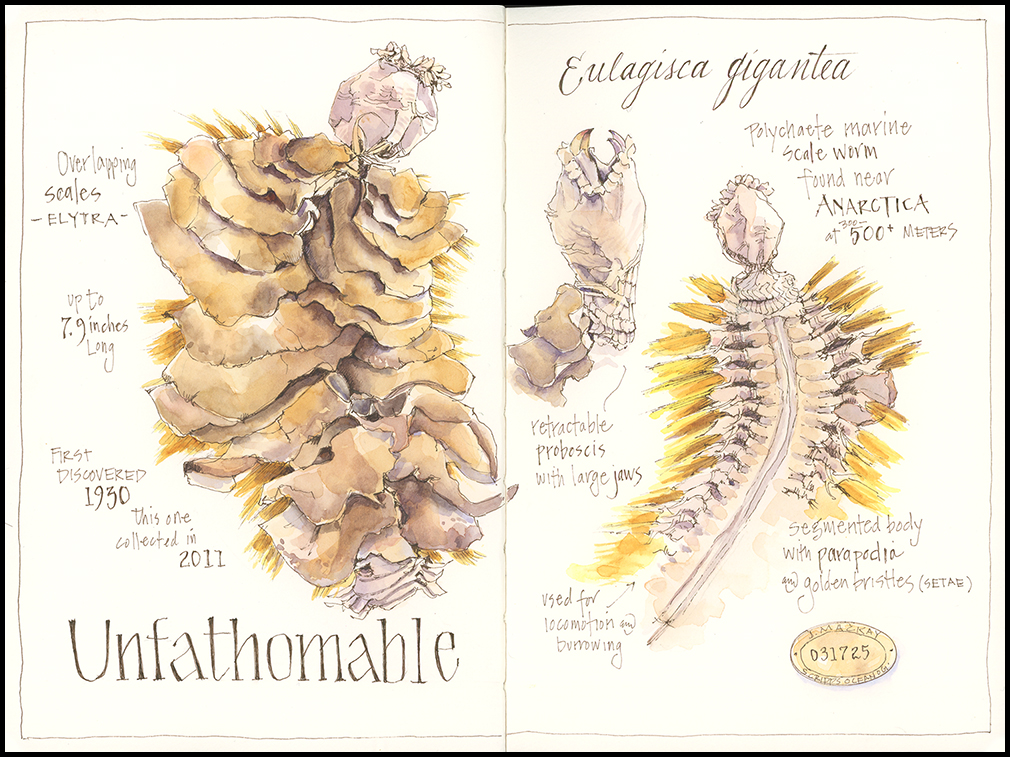 Overlapping
scales
- ELYTRA -
up to
7.9 inches
Long
FIRST
DISCOVERED
1930
this one
collected in
2011
Unfathomable
Eulagisca gigantea
Polychaete marine
scale worm
found near
ANARCTICA
300-
at 500+ METERS
retractable
proboscis
with large jaws
segmented body
with parapodia
and golden bristles (SETAE)
used for
locomotion and
burrowing
J. MACKAY
031725
SCRIPPS OCEANOG.